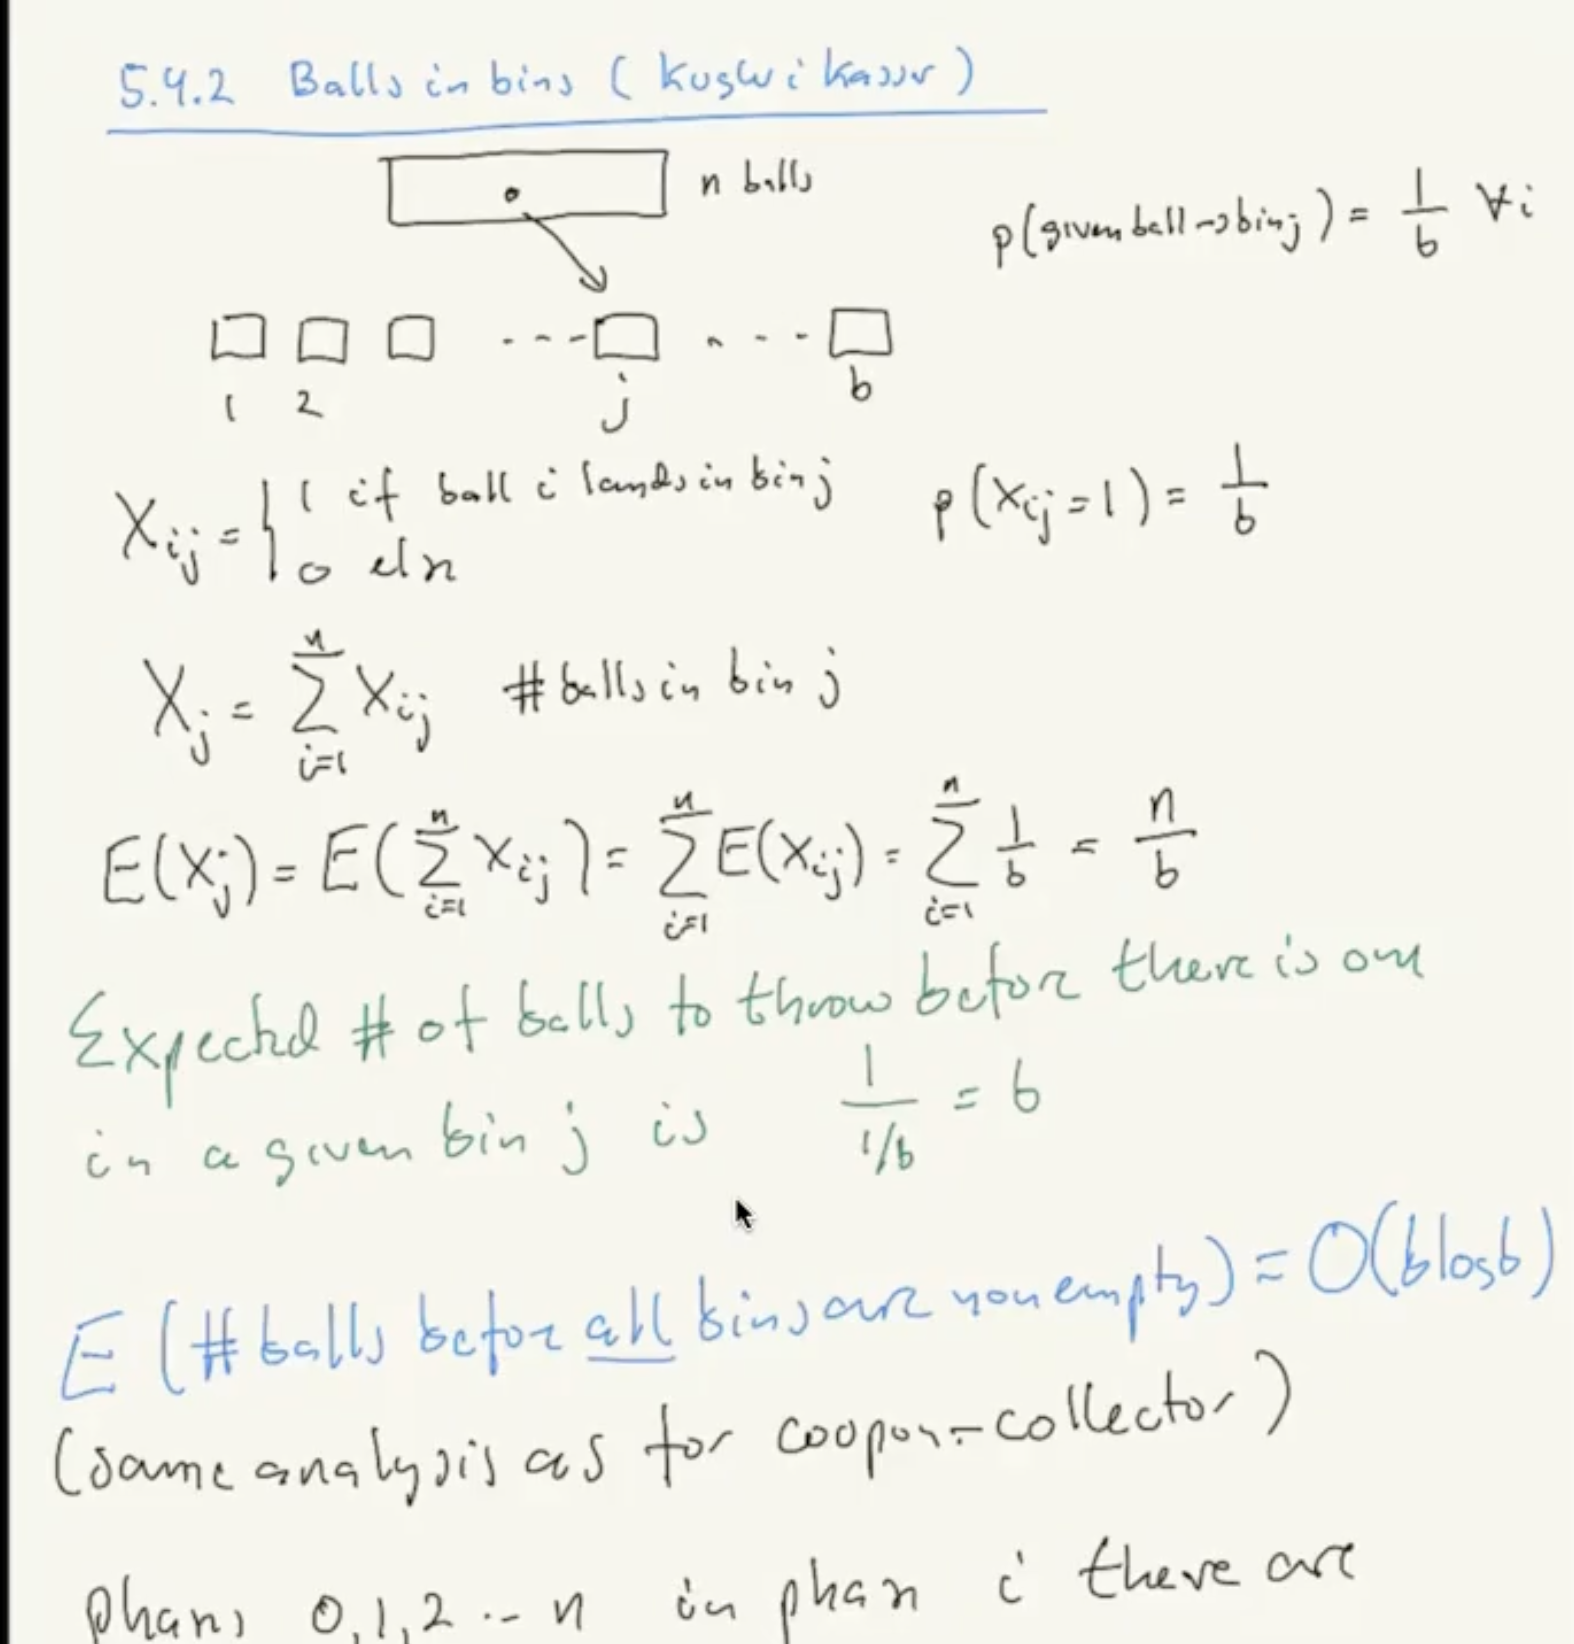 5.4.2 Balls in bins (Kugler i kasser)
n balls
p(given ball → bin j) = 1/b ∀i
1 2 j b
X_ij = { 1 if ball i lands in bin j
0 else
p(X_ij = 1) = 1/b
X_j = ∑_{i=1}^{n} X_ij # balls in bin j
E(X_j) = E(∑_{i=1}^{n} X_ij) = ∑_{i=1}^{n} E(X_ij) = ∑_{i=1}^{n} 1/b = n/b
Expected # of balls to throw before there is one
in a given bin j is 1/(1/b) = b
E(# balls before all bins are nonempty) = O(b log b)
(same analysis as for coopon-collector)
phases 0,1,2 .. n in phase i there are